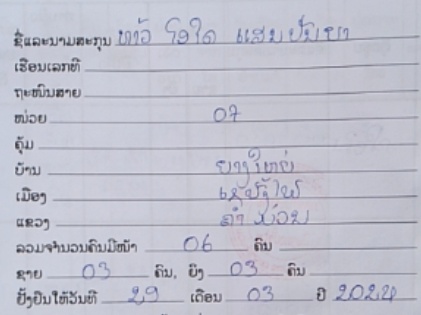 ຊື່ແລະນາມສະກຸນ ທ້າວ ໂອໃດ ແສນປັນຍາ
ເຮືອນເລກທີ
ຖະໜົນສາຍ
ໜ່ວຍ 07
ຄຸ້ມ
ບ້ານ ຍາງໃຫຍ່
ເມືອງ ເຊບັ້ງໄຟ
ແຂວງ ຄຳມ່ວນ
ລວມຈຳນວນຄົນມີໜ້າ 06 ຄົນ
ຊາຍ 03 ຄົນ, ຍິງ 03 ຄົນ
ຢັ້ງຢືນໃຫ້ວັນທີ 29 ເດືອນ 03 ປີ 2024